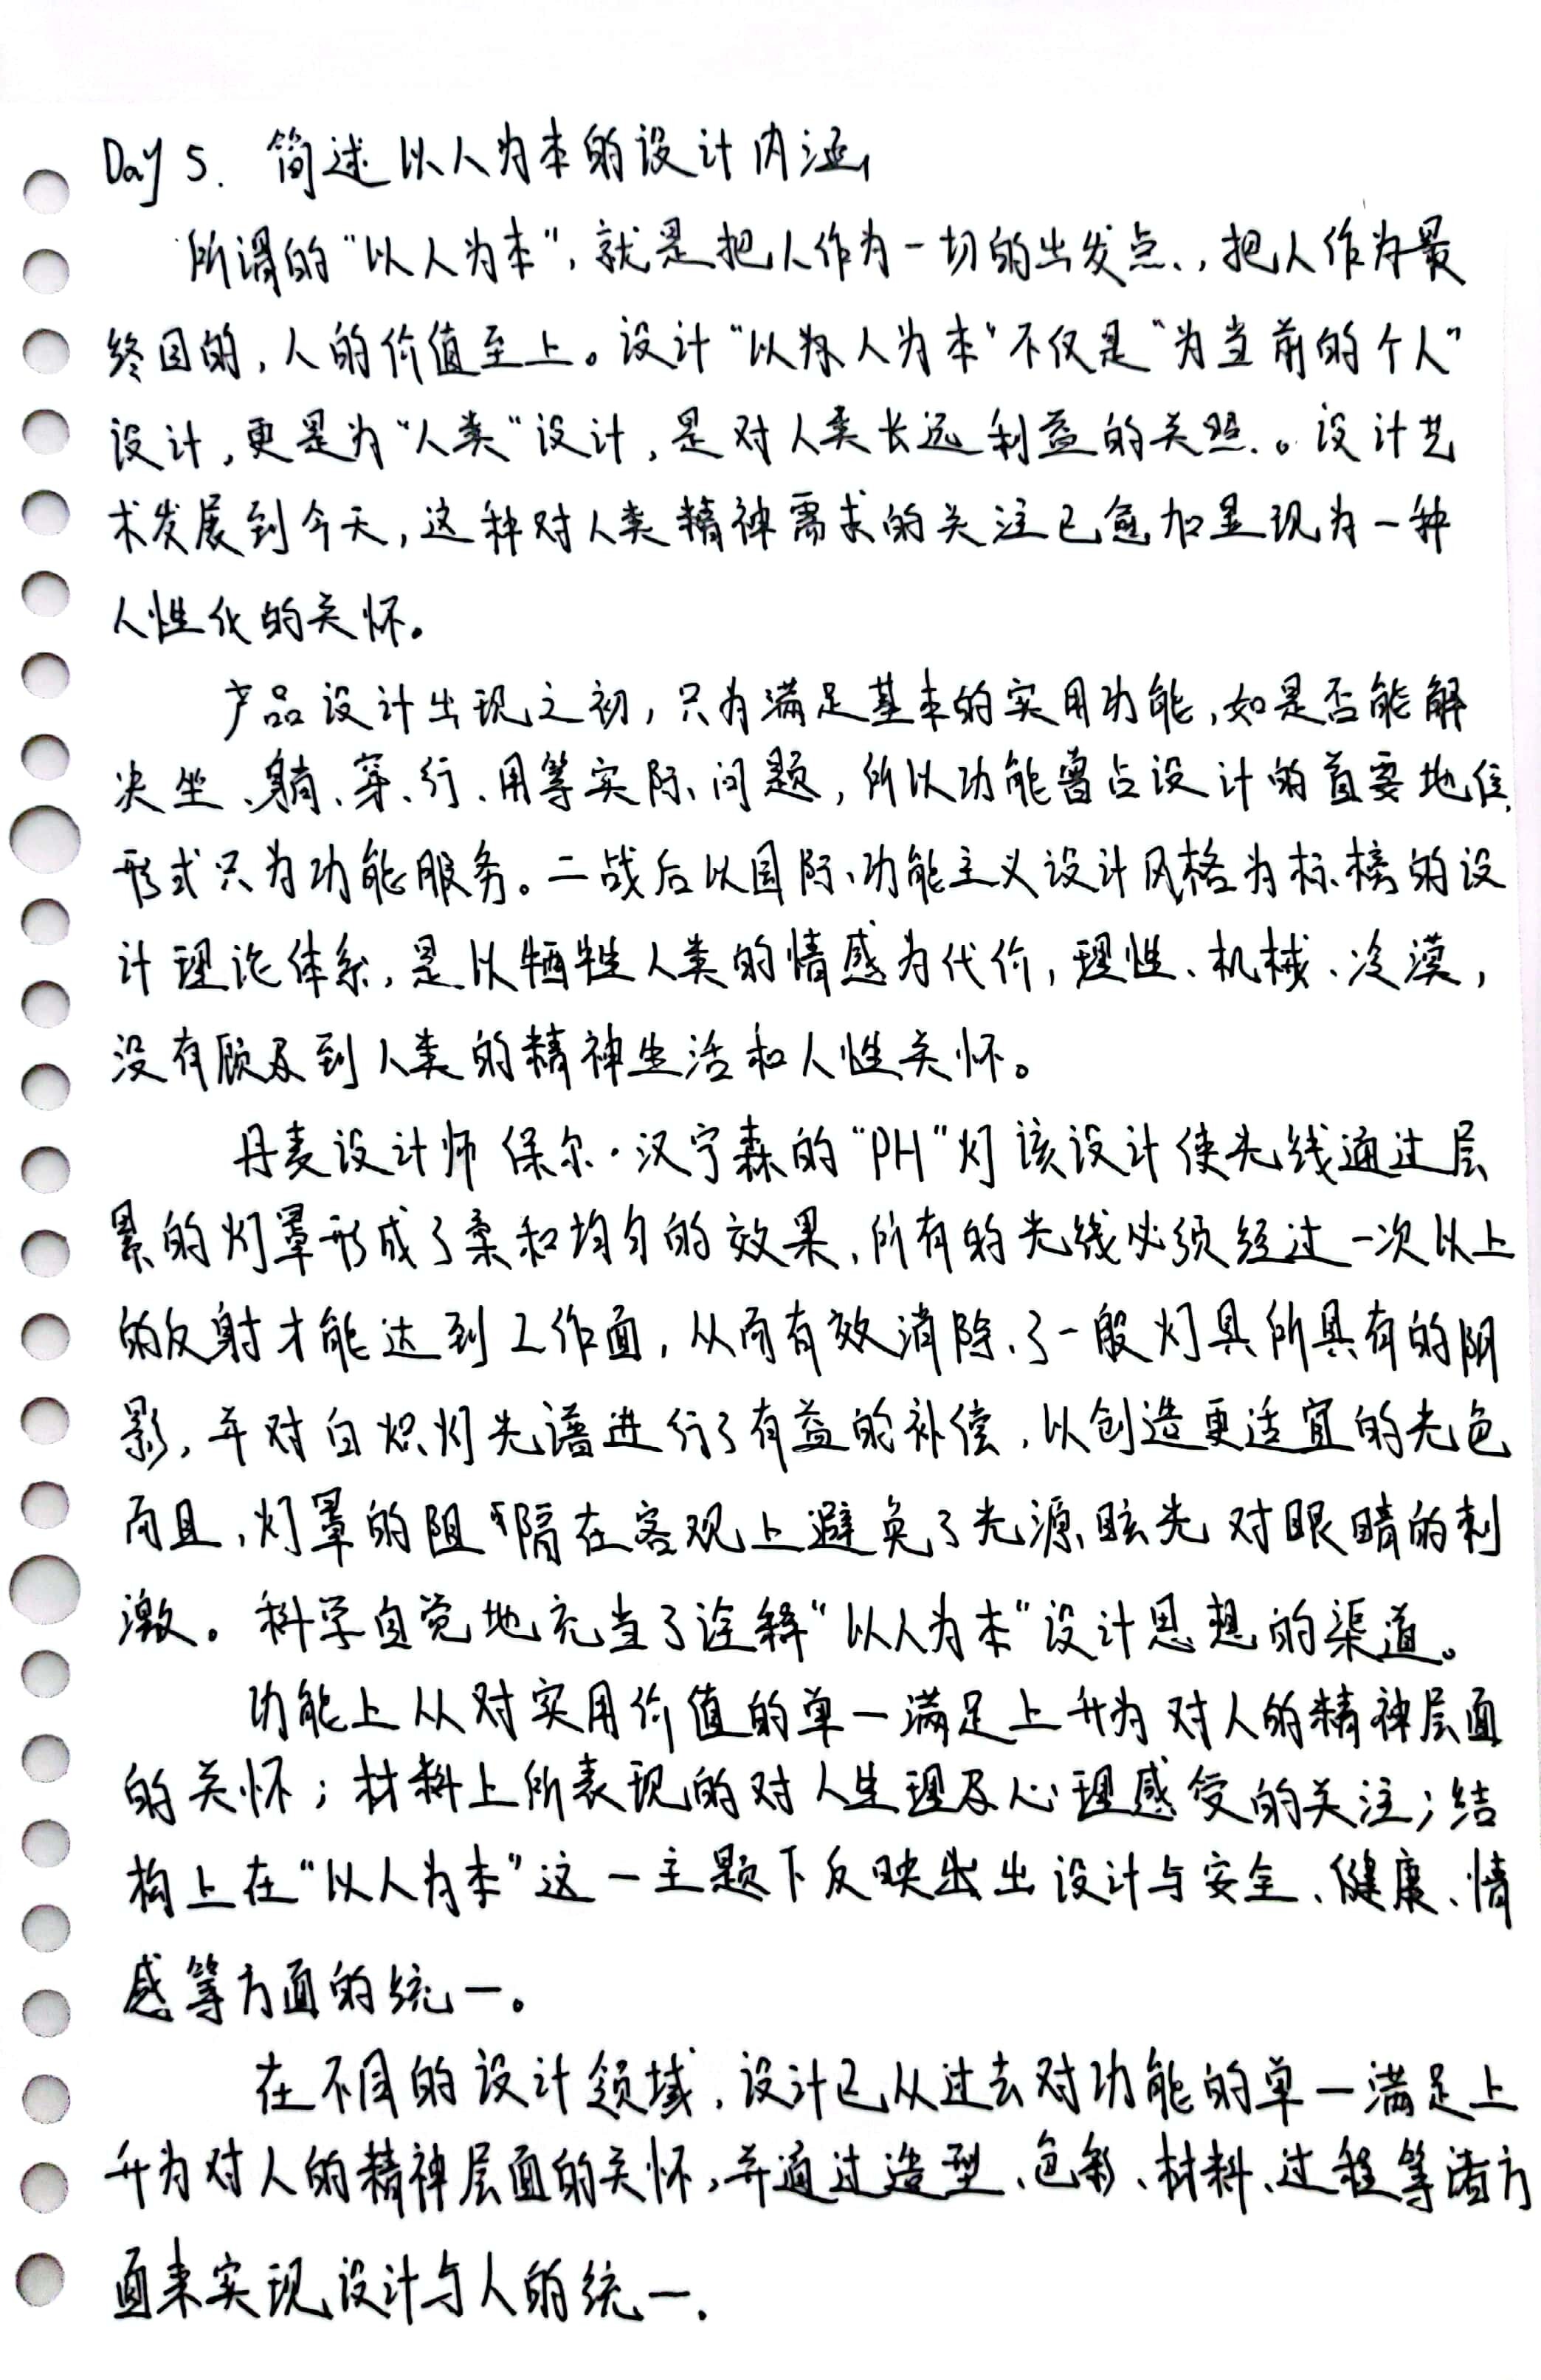 Day 5. 简述以人为本的设计内涵
所谓的“以人为本”，就是把人作为一切的出发点，把人作为最
终目的，人的价值至上。设计“以人为本”不仅是“为当前的个人”
设计，更是为“人类”设计，是对人类长远利益的关照。设计艺
术发展到今天，这种对人类精神需求的关注已愈加显现为一种
人性化的关怀。
产品设计出现之初，只为满足基本的实用功能，如是否能解
决坐、躺、穿、行、用等实际问题，所以功能曾占设计的首要地位，
形式只为功能服务。二战后以国际功能主义设计风格为标榜的设
计理论体系，是以牺牲人类的情感为代价，理性、机械、冷漠，
没有顾及到人类的精神生活和人性关怀。
丹麦设计师保尔·汉宁森的“PH”灯该设计使光线通过层
累的灯罩形成了柔和均匀的效果，所有的光线必须经过一次以上
的反射才能达到工作面，从而有效消除了一般灯具所具有的阴
影，并对白炽灯光谱进行了有益的补偿，以创造更适宜的光色
而且，灯罩的阻隔在客观上避免了光源眩光对眼睛的刺
激。科学自觉地充当了诠释“以人为本”设计思想的渠道。
功能上从对实用价值的单一满足上升为对人的精神层面
的关怀；材料上所表现的对人生理及心理感受的关注；结
构上在“以人为本”这一主题下反映出设计与安全、健康、情
感等方面的统一。
在不同的设计领域，设计已从过去对功能的单一满足上
升为对人的精神层面的关怀，并通过造型、色彩、材料、过程等诸方
面来实现设计与人的统一.